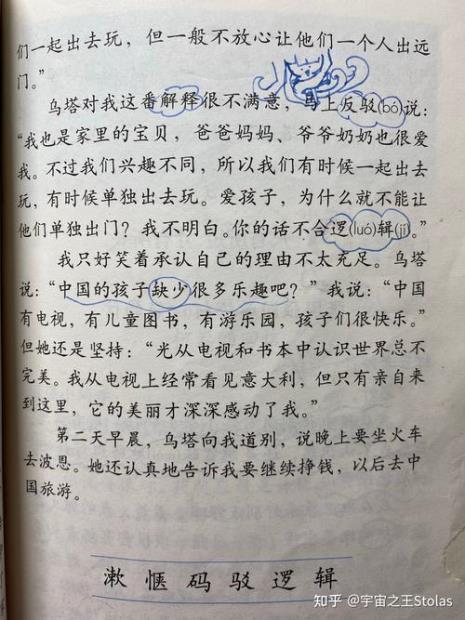 们一起出去玩，但一般不放心让他们一个人出远
门。”
乌塔对我这番解释很不满意，马上反驳(bó)说：
“我也是家里的宝贝，爸爸妈妈、爷爷奶奶也很爱
我。不过我们兴趣不同，所以我们有时候一起出去
玩，有时候单独出去玩。爱孩子，为什么就不能让
他们单独出门？我不明白。你的话不合逻(luó)辑(jí)。”
我只好笑着承认自己的理由不太充足。乌塔
说：“中国的孩子缺少很多乐趣吧？”我说：“中国
有电视，有儿童图书，有游乐园，孩子们很快乐。”
但她还是坚持：“光从电视和书本中认识世界总不
完美。我从电视上经常看见意大利，但只有亲自来
到这里，它的美丽才深深感动了我。”
第二天早晨，乌塔向我道别，说晚上要坐火车
去波恩。她还认真地告诉我要继续挣钱，以后去中
国旅游。
漱惬码驳逻辑
知乎 @宇宙之王Stolas